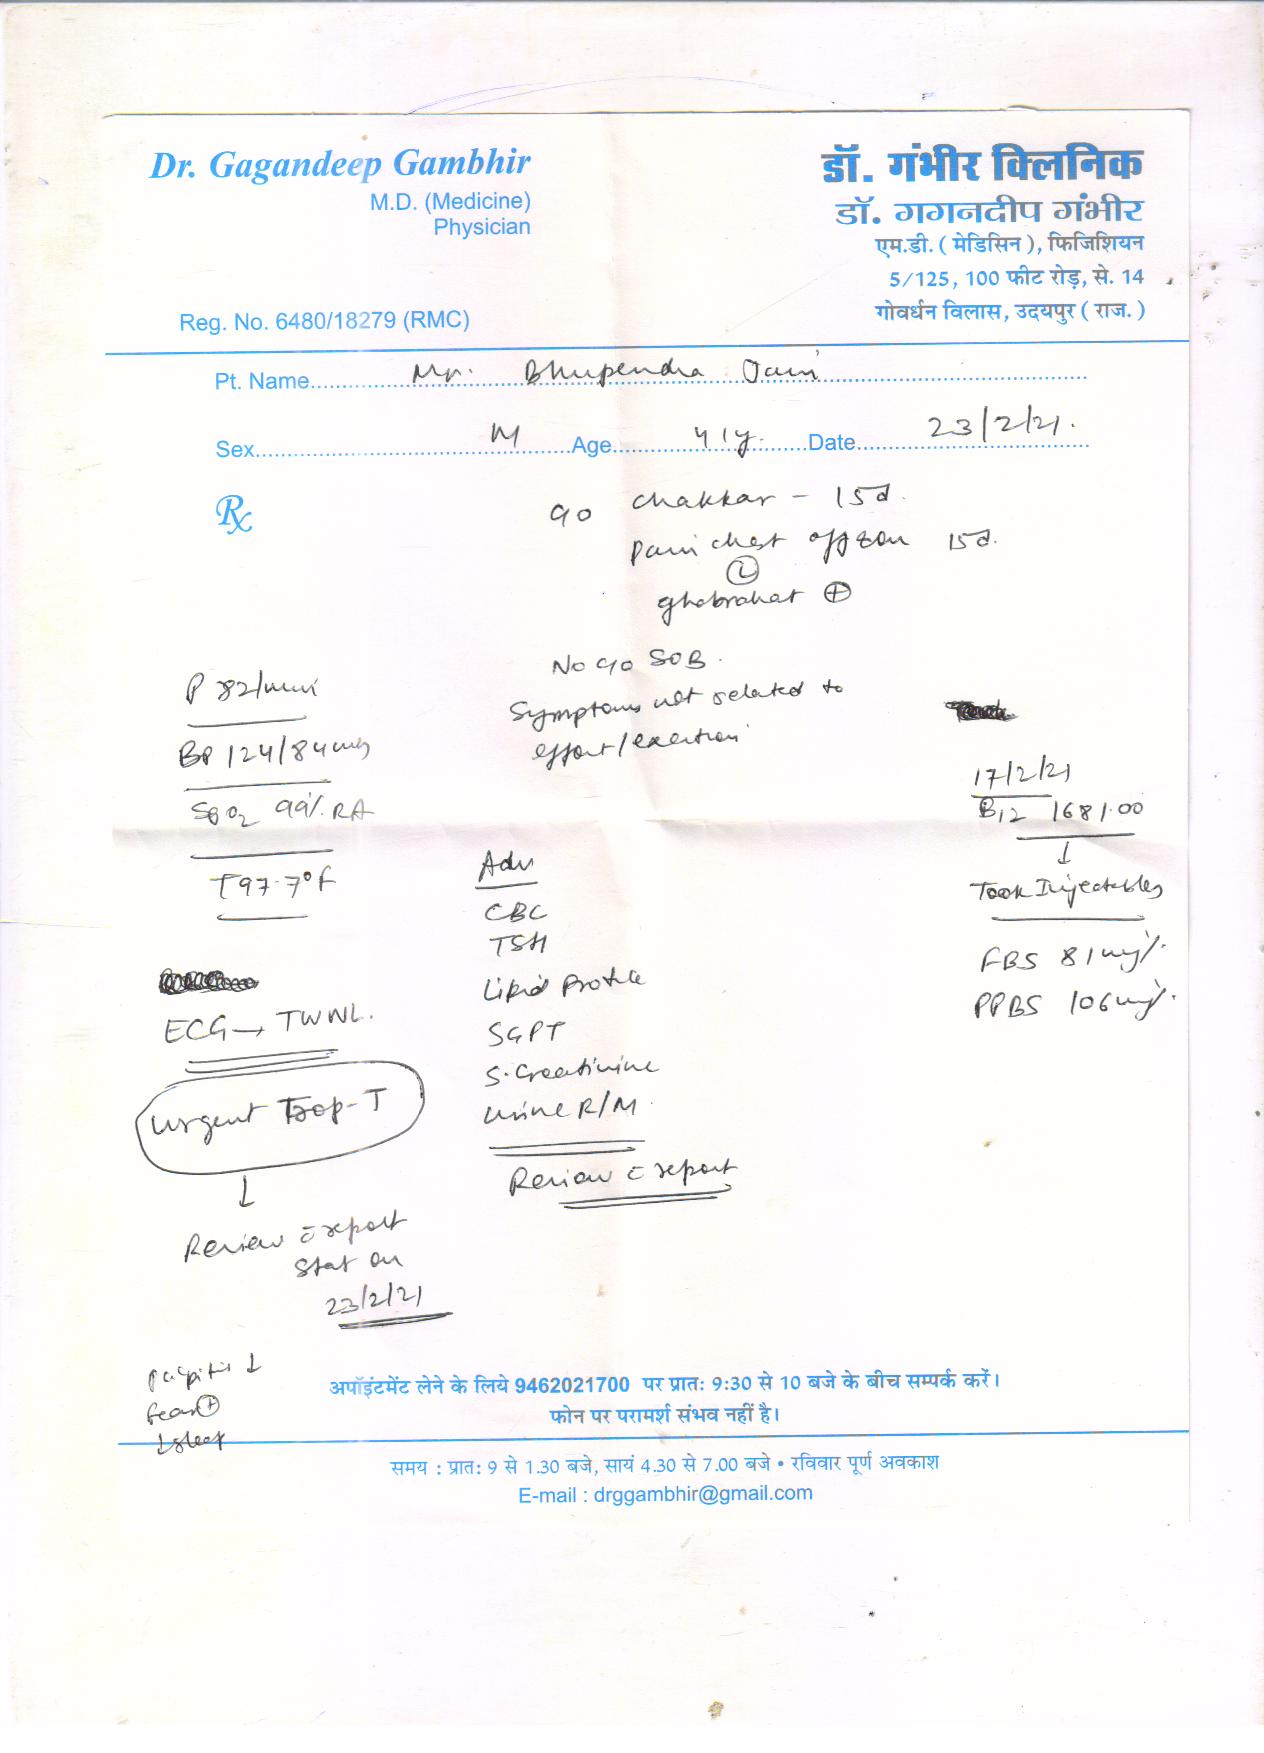 Dr. Gagandeep Gambhir
M.D. (Medicine)
Physician
Reg. No. 6480/18279 (RMC)
डॉ. गंभीर क्लिनिक
डॉ. गगनदीप गंभीर
एम.डी. ( मेडिसिन ), फिजिशियन
5/125, 100 फीट रोड़, से. 14
गोवर्धन विलास, उदयपुर ( राज. )
Pt. Name Mr. Bhupendra Jain
Sex M Age 41y. Date 23/2/21.
Rx
c/o chakkar - 15d.
Pain chest off & on 15d.
(L)
ghabrahat (+)
No c/o SOB.
Symptoms not related to
effort/exertion
P 82/min
BP 124/84
SPO2 99% RA
T 97.7°F
ECG → TWNL.
Urgent Trop-T
↓
Review c̄ report
Stat on
23/2/21
Adv
CBC
TSH
Lipid Profile
SGPT
S. Creatinine
Urine R/M
Review c̄ report
17/2/21
B12 1681.00
↓
Took Injectables
FBS 81mg%.
PPBS 106mg%.
↓
fear (+)
↓ sleep
अपॉइंटमेंट लेने के लिये 9462021700 पर प्रातः 9:30 से 10 बजे के बीच सम्पर्क करें।
फोन पर परामर्श संभव नहीं है।
समय : प्रातः 9 से 1.30 बजे, सायं 4.30 से 7.00 बजे • रविवार पूर्ण अवकाश
E-mail : drggambhir@gmail.com